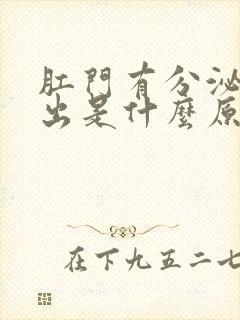 肛門有分泌
出是什麼原
在下九五二七